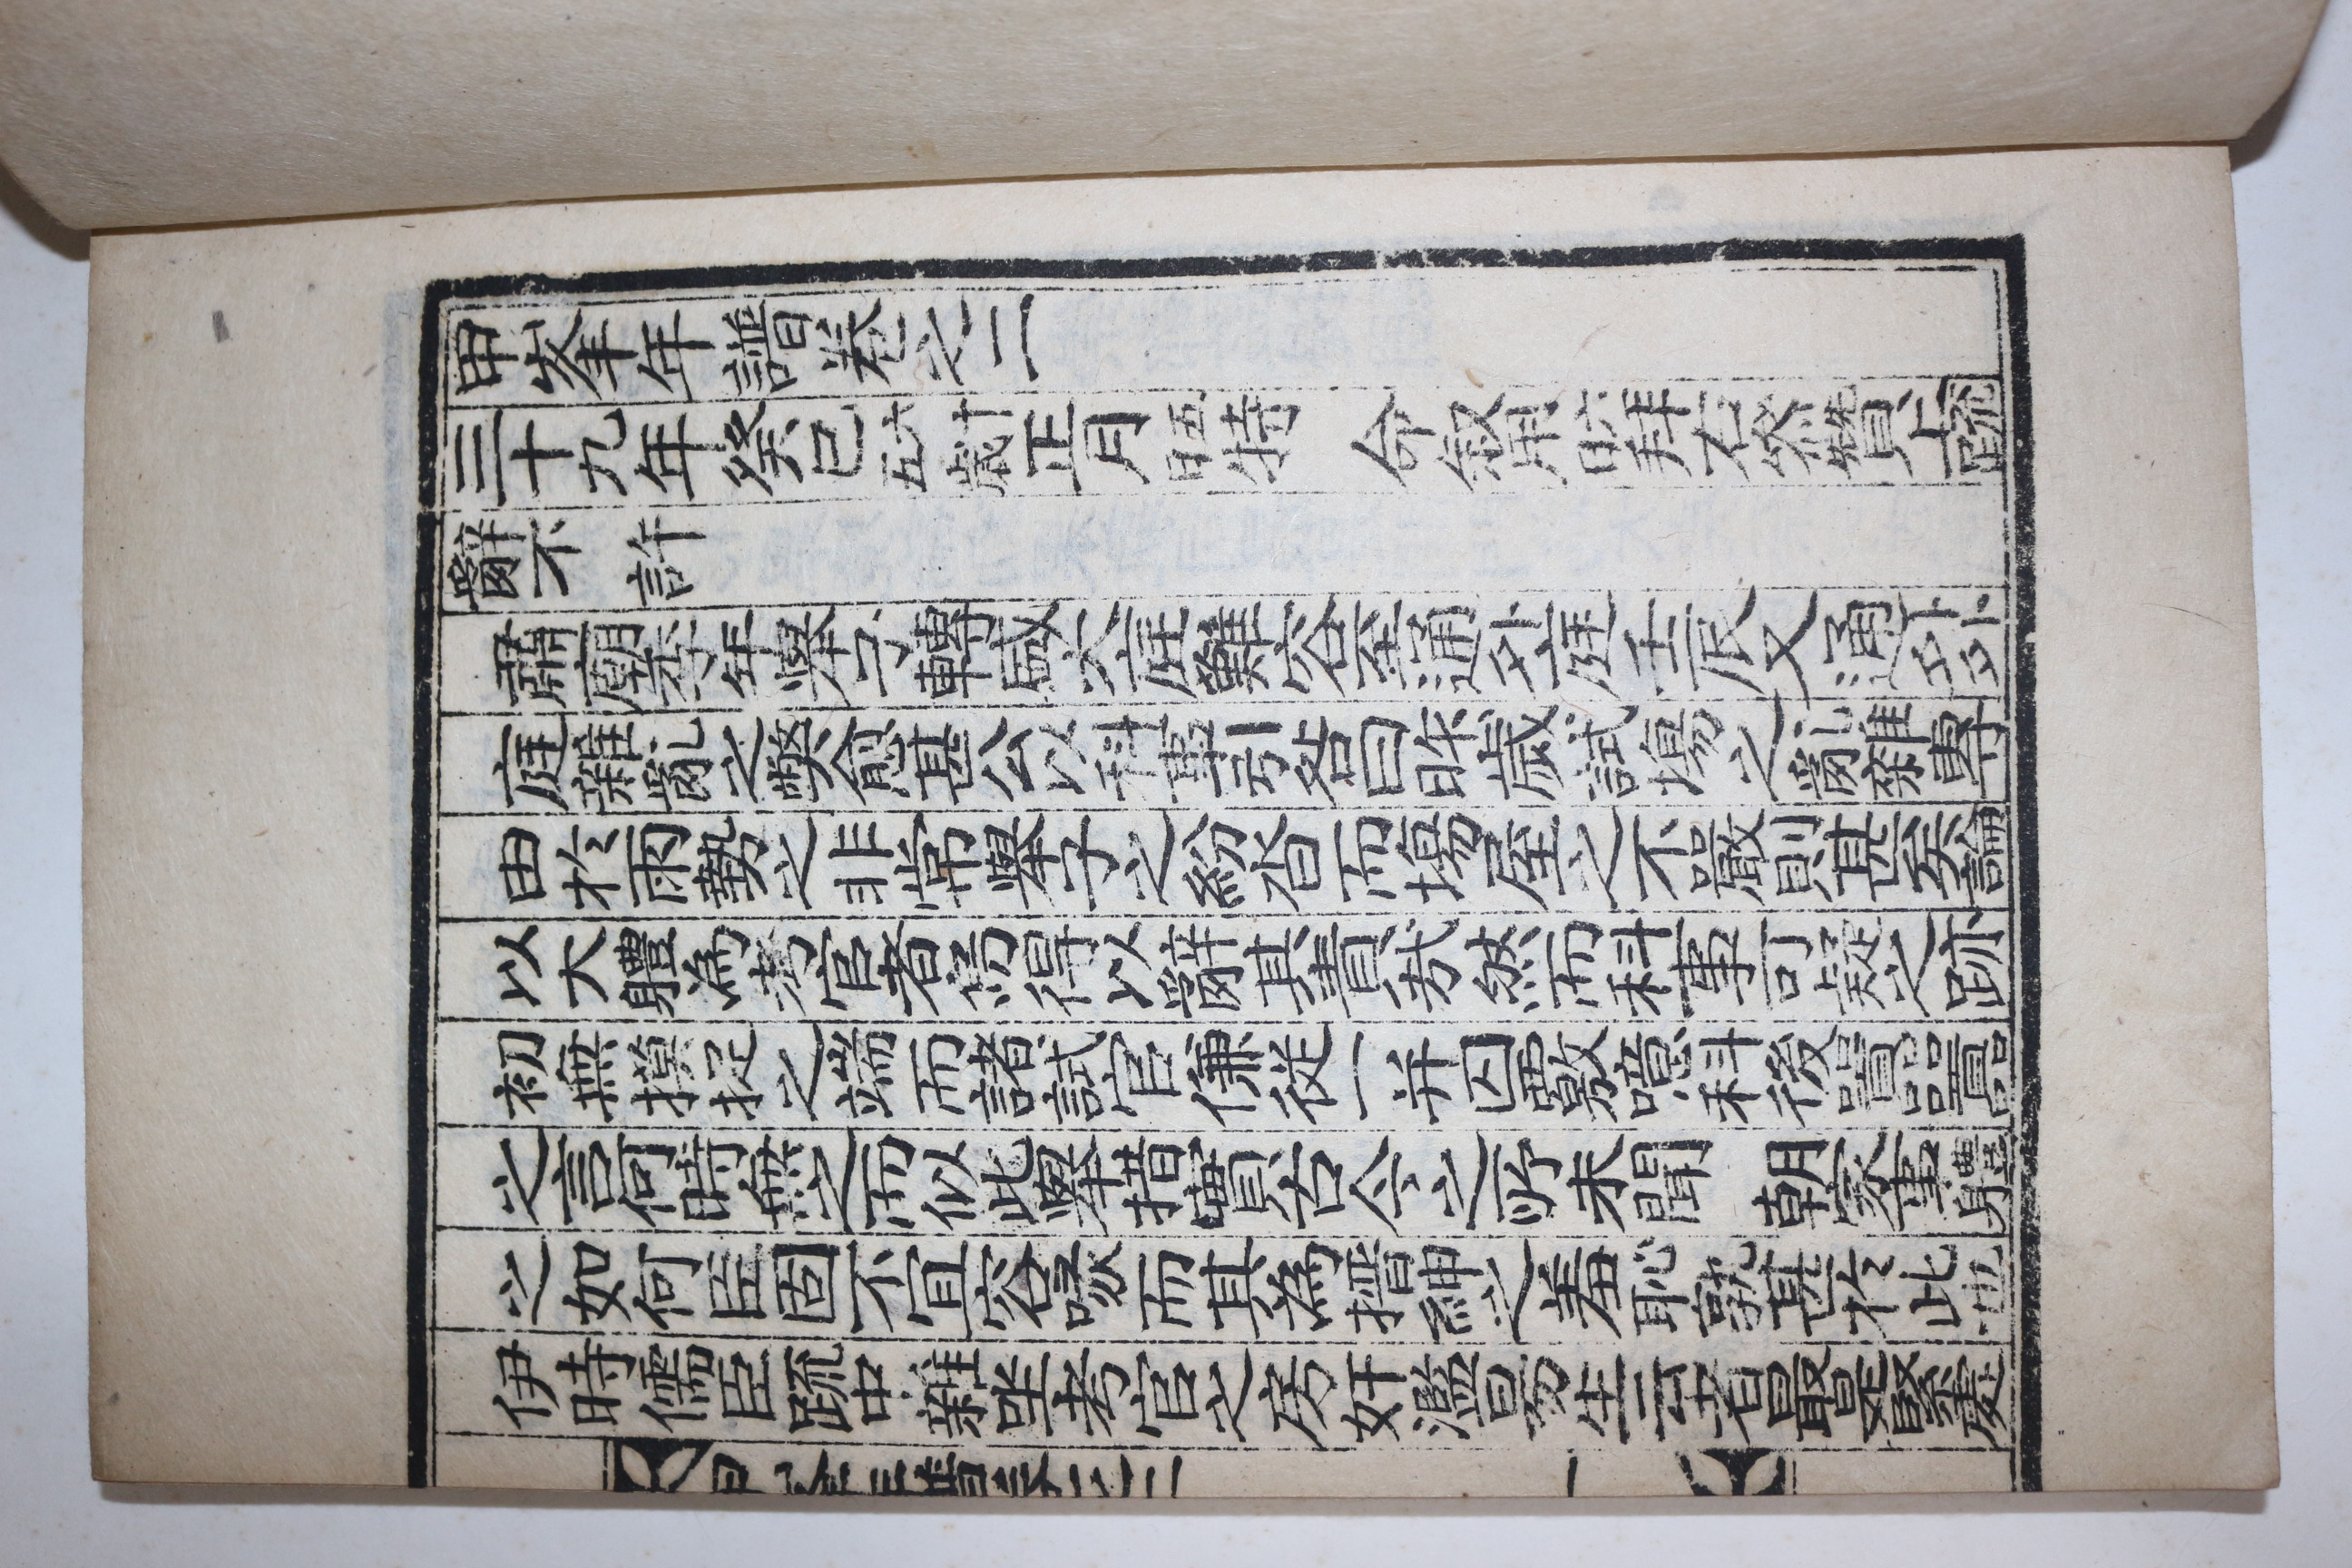 甲峯年譜卷之二
三十九年癸巳六十五歲正月五日特 命叙用六日拜右參贊上疏
辭不 許
肅廟季年舉子轉盛大庭難容至通外庭壬辰又通外外
庭雜亂之弊愈甚公以科事引咎曰昨歲試塲之亂雜專
由於雨勢之非常舉子之紛沓而塲屋之不嚴則甚矣論
以大體為考官者烏得以辭其責㦲然而科事可疑之跡
初無摸捉之端而諸試官傔從一并囚覈噫科後嘖嚚
之言何時無之而似此舉措實古今之所未聞 朝家事體
之如何臣固不宜容喙而其為搢紳之羞恥孰甚於此也
伊時儒臣䟽中雜坐考官之房奸濫易生云者最是緊處